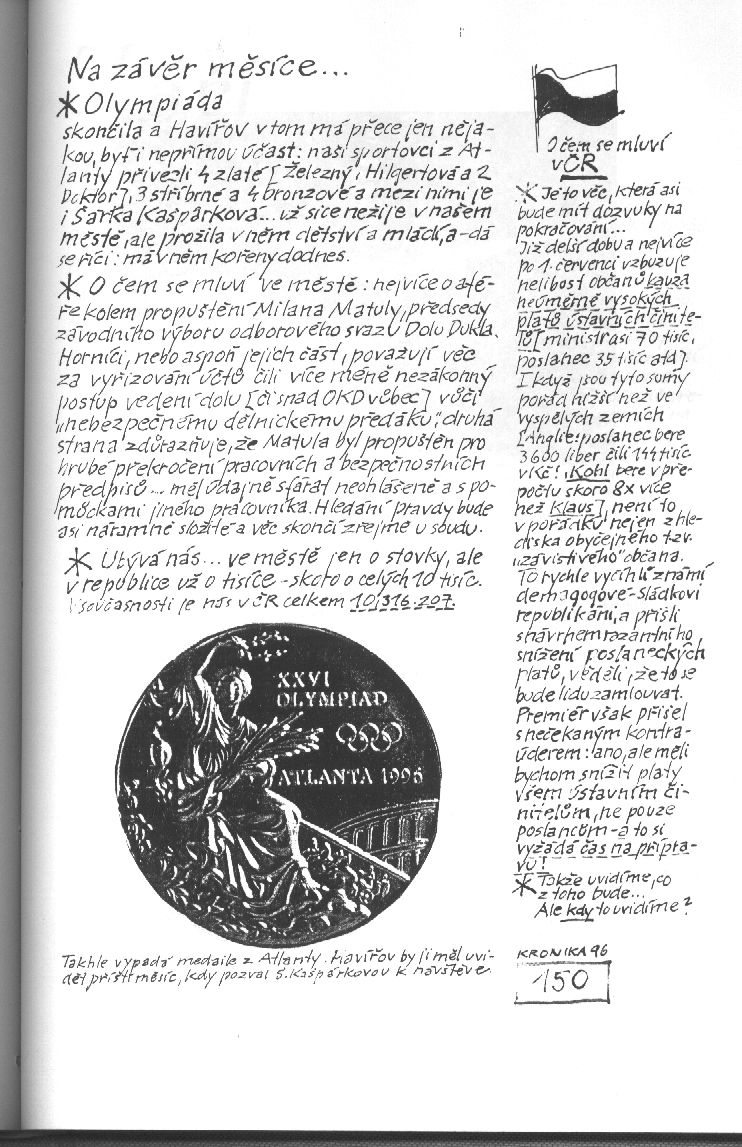 Na závěr měsíce...
* Olympiáda
skončila a Havířov v tom má přece jen něja-
kou, byť i nepřímou účast: naši sportovci z At-
lanty přivezli 4 zlaté [Železný, Hilgertová a 2
Doktoř], 3 stříbrné a 4 bronzové a mezi nimi je
i Šárka Kašpárková... už sice nežije v našem
městě, ale prožila v něm dětství a mládí, a-dá
se říci: má v něm kořeny dodnes.
* O čem se mluví ve městě: nejvíce o afé-
ře kolem propuštění Milana Matuly, předsedy
závodního výboru odborového svazu Dolu Dukla.
Horníci, nebo aspoň jejich část, považují věc
za vyřizování účtů čili více méně nezákonný
postup vedení dolu [či snad OKD vůbec] vůči
„nebezpečnému dělnickému předáku", druhá
strana zdůrazňuje, že Matula byl propuštěn pro
hrubé překročení pracovních a bezpečnostních
předpisů ... měl údajně sfárat neohlášeně a s po-
můckami jiného pracovníka. Hledání pravdy bude
asi náramně složité a věc skončí zřejmě u soudu.
* Ubývá nás... ve městě jen o stovky, ale
v republice už o tisíce - skoro o celých 10 tisíc.
V současnosti je nás v ČR celkem 10,316.207.
XXVI
OLYMPIAD
ATLANTA 1996
Takhle vypadá medaile z Atlanty. Havířov by ji měl uvi-
dět příští měsíc, kdy pozval Š. Kašpárkovou k návštěvě.
O čem se mluví
v ČR
* Je to věc, která asi
bude mít dozvuky na
pokračování...
Již delší dobu a nejvíce
po 1. červenci vzbuzuje
nelibost občanů kauza
neúměrně vysokých
platů ústavních činite-
lů [ministr asi 70 tisíc,
poslanec 35 tisíc atd].
I když jsou tyto sumy
pořád nižší než ve
vyspělých zemích
[Anglie: poslanec bere
3600 liber čili 144 tisíc
v Kč!, Kohl bere v pře-
počtu skoro 8x více
než Klaus], není to
v pořádku nejen z hle-
diska obyčejného tzv.
„závistivého" občana.
To rychle vycítili známí
demagogové-Sládkovi
republikáni, a přišli
s návrhem razantního
snížení poslaneckých
platů, věděli, že to se
bude lidu zamlouvat.
Premiér však přišel
s nečekaným kontra-
úderem: ano, ale měli
bychom snížit platy
všem ústavním či-
nitelům, ne pouze
poslancům - a to si
vyžádá čas na přípra-
vu!
* Takže uvidíme, co
z toho bude...
Ale kdy to uvidíme?
KRONIKA 96
150